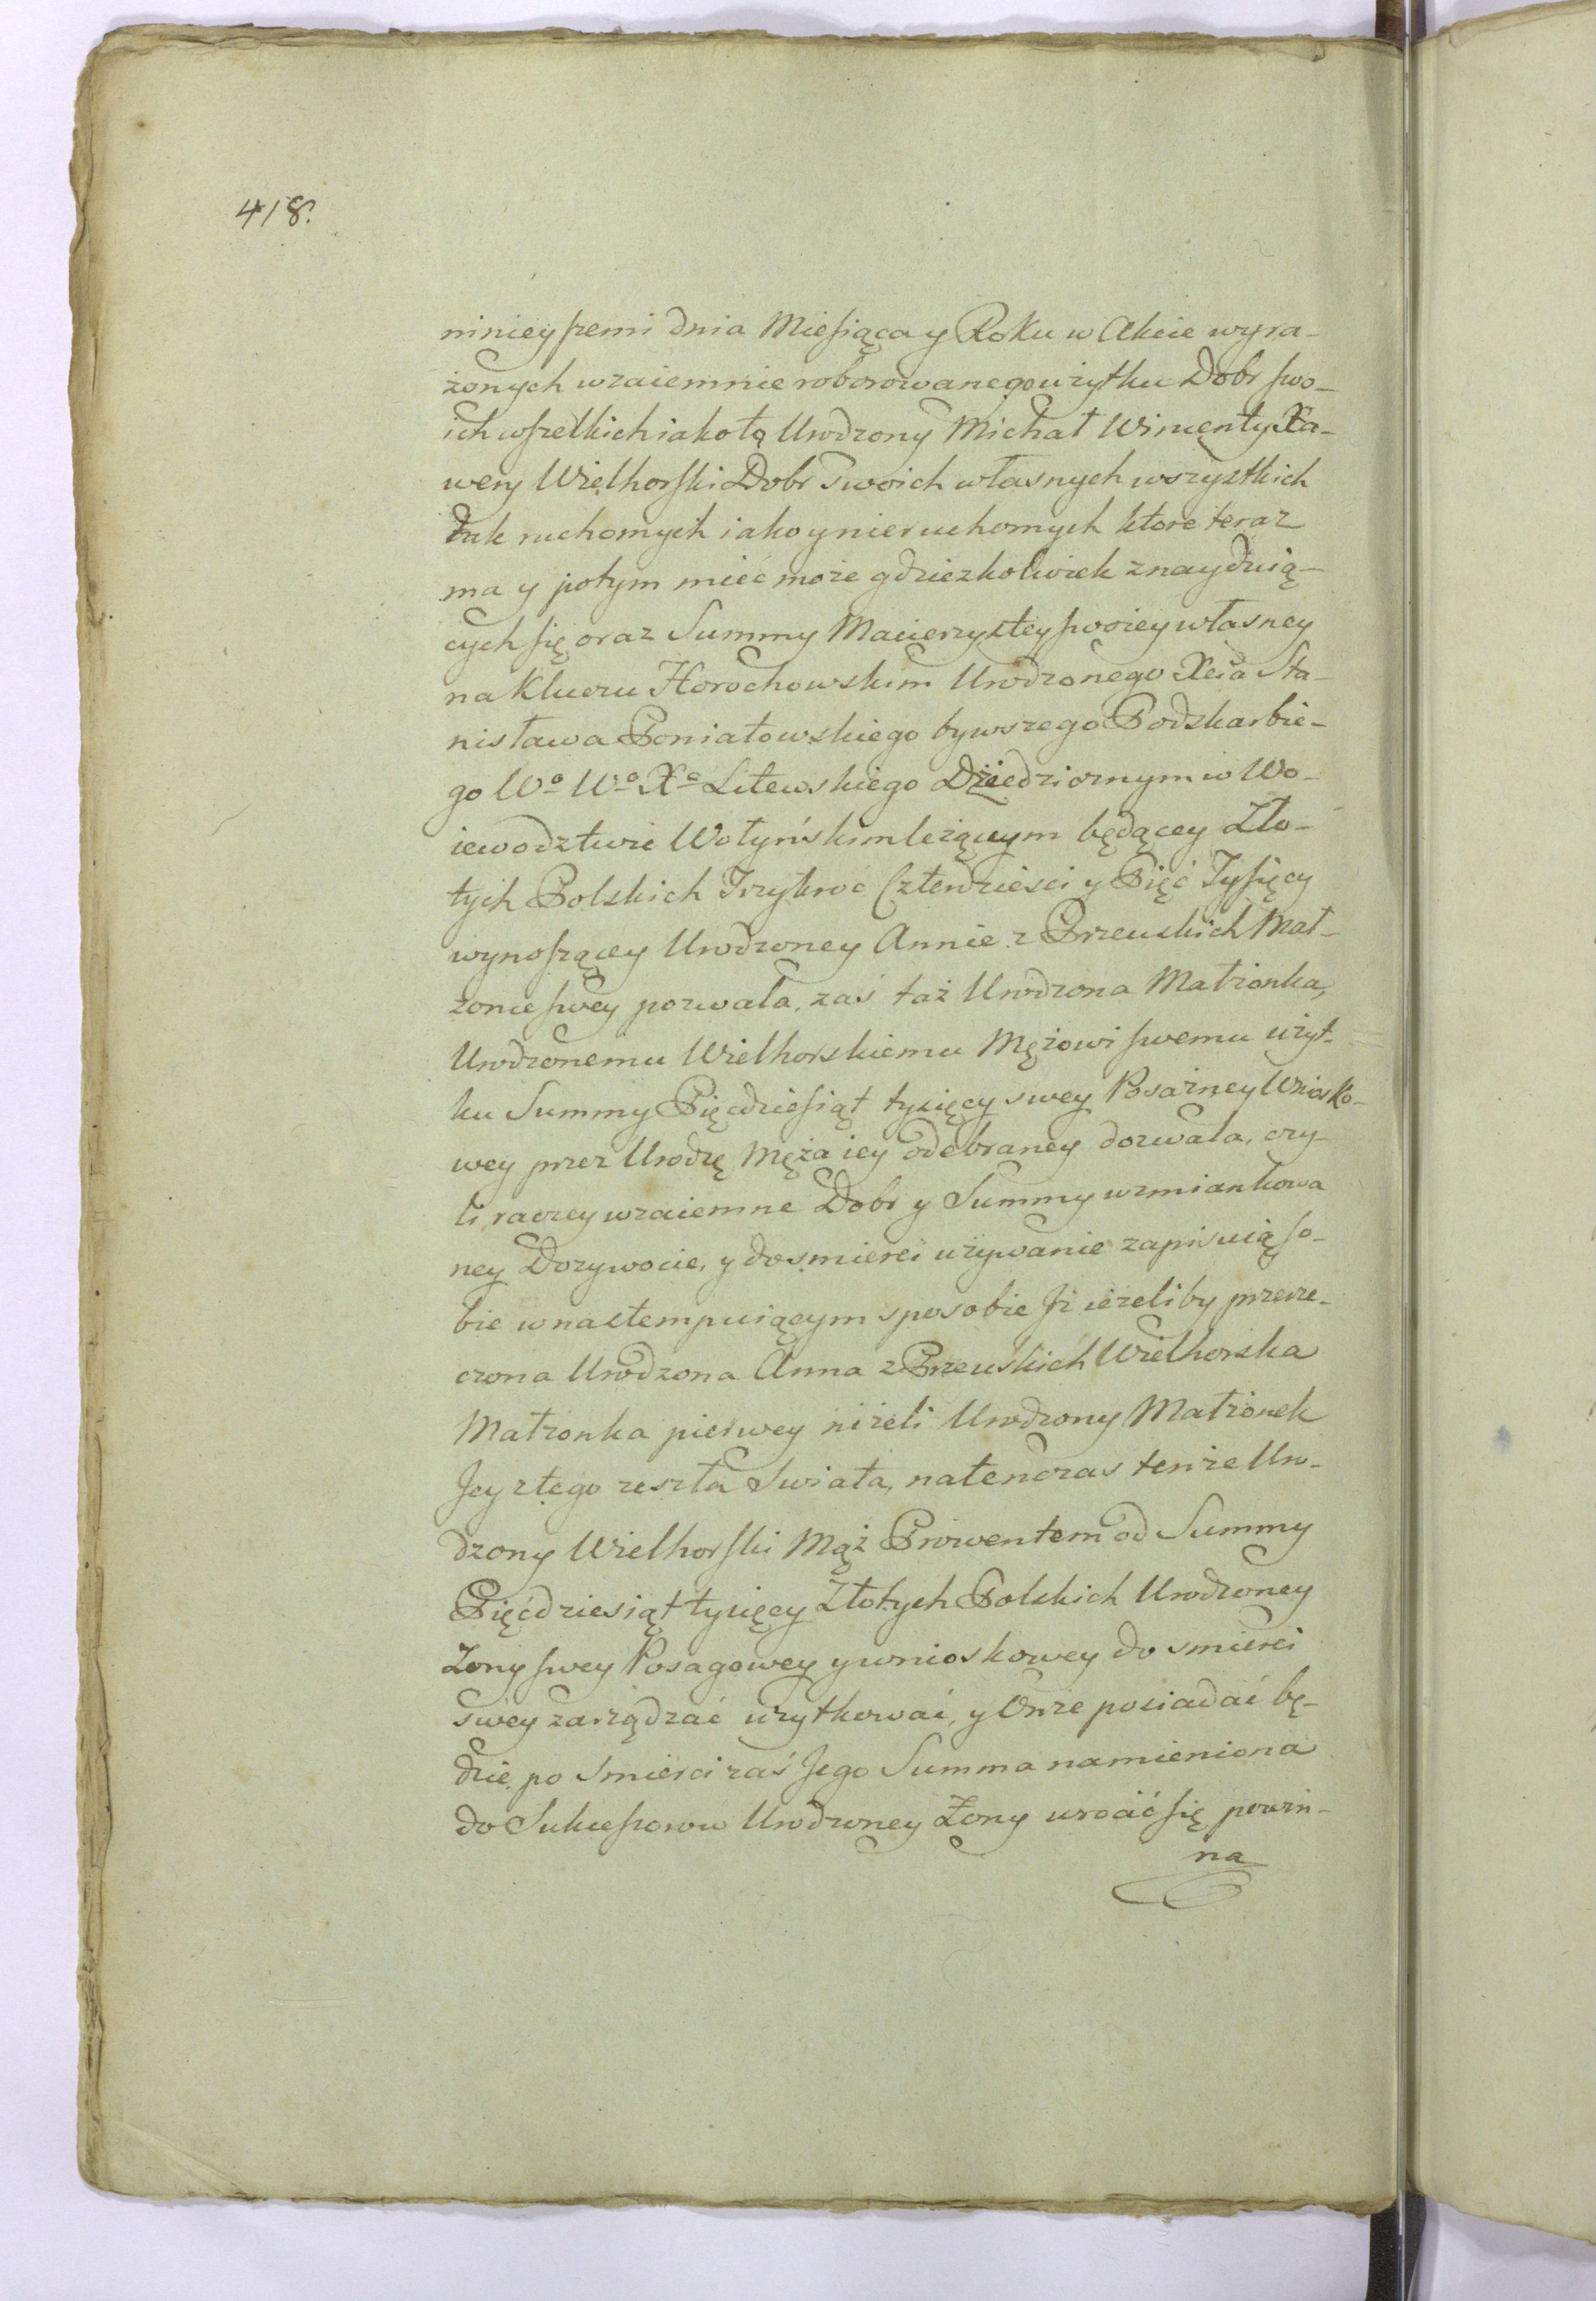 418.
nineyszemi dnia Miesiąca y Roku w Akcie wyra-
żonych wzaiemnie roborowanego użytku Dobr swo-
ich wszelkich iako tą Urodzony Michał Wincenty Xa-
wery Wielhorski Dobr swoich własnych wszystkich
tak ruchomych iako y nieruchomych ktore teraz
ma y potym mieć może gdziezkolwiek znayduią-
cych się oraz Summy Macierzystey swoiey własney
na Kluczu Horochowskim Urodzonego Xcia Sta-
nisława Poniatowskiego bywszego Podskarbie-
go Wo Wo Xa Litewskiego Dziedzicznym w Wo-
iewodztwie Wołyńskim leżącym będącey Zło-
tych Polskich Trzykroć Czterdzieści y Pięć Tysięcy
wynoszącey Urodzoney Annie z Przeuskich Mał-
zonce swey pozwala, zaś taż Urodzona Małżonka,
Urodzonemu Wielhorskiemu Mężowi swemu użyt-
ku Summy Pięcdziesiąt tysięcy swey Posażney Wniosko-
wey przez Urodzę Męża iey odebraney dozwala, czy-
li raczey wzaiemne Dobr y Summy wzmiankowa
ney Dozywocie, y do smierci używanie zapisuią so-
bie w nastempuiącym sposobie Iż ieżeliby przerze-
czona Urodzona Anna z Przeuskich Wielhorska
Małżonka pierwey niżeli Urodzony Małżonek
Jey z tego zeszła Swiata, natenczas tenże Uro-
dzony Wielhorski Mąż Prowentem od Summy
Pięćdziesiąt tysięcy Złotych Polskich Urodzoney
Zony swey Posagowey y wnioskowey do smierci
swey zarządzać użytkować, y Onże posiadać bę-
dzie, po Smierci zaś Jego Summa namieniona
do Sukcessorow Urodzoney Żony wrócić się powin-
na